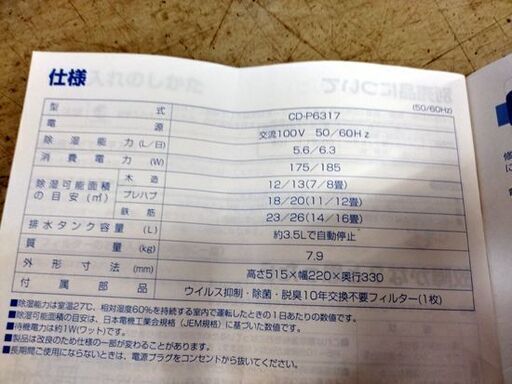 仕様
(50/60Hz)
型式 CD-P6317
電源 交流100V 50/60Hz
除湿能力(L/日) 5.6/6.3
消費電力(W) 175/185
除湿可能面積の目安(㎡) 木造 12/13(7/8畳)
プレハブ 18/20(11/12畳)
鉄筋 23/26(14/16畳)
排水タンク容量(L) 約3.5Lで自動停止
質量(kg) 7.9
外形寸法(mm) 高さ515×幅220×奥行330
付属部品 ウイルス抑制・除菌・脱臭10年交換不要フィルター(1枚)
■除湿能力は室温27℃、相対湿度60%を持続する室内で運転したときの1日あたりの数値です。
■除湿可能面積の目安は、日本電機工業会規格(JEM規格)に基づいた数値です。
■待機電力は約1W(ワット)です。
■製品は改良のため仕様の一部が変わることがあります。
■長期間ご使用にならないときは、電源プラグをコンセントから抜いてください。